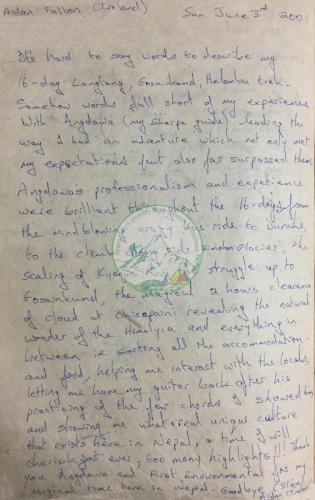 Aidan Fallon (Ireland) Sun June 3rd 2001
It's hard to say words to describe my
16-day Langtang, Gosainkund, Helambu trek.
Somehow words fall short of my experiences
With Angdawa (my Sherpa guide) leading the
way I had an adventure which not only met
my expectations but also far surpassed them
Angdawas professionalism and experience
were brilliant throughout the 16-days, from
the mindblowing crazy bus ride to Dunche,
to the climb side Glacier, the
scaling of Kyanjin struggle up to
Gosainkund the magical 2 hours clearence
of cloud at Chisapaini revealing the natural
wonder of the Himalyia and everything in
between i.e. sorting all the accommodation
and food, helping me interact with the locals,
letting me have my guitar back after his
practicing of the few chords I showed him
and showing me what a real unique culture
that exists here in Nepal, a time I will
cherish for ever, too many highlights!! Thank
you Angdawa and First Environmental for my
magical time here in Nepal. Goodbye (Slán)
Aidan